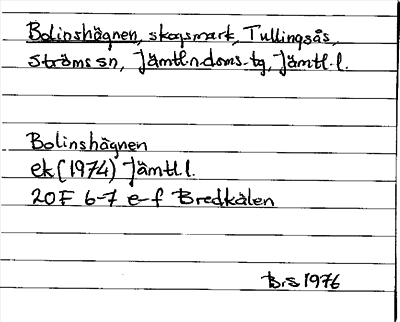 Bolinshägnen, skogsmark, Tullingsås,
Ströms sn, Jämtl. n. doms. tg, Jämtl. l.
Bolinshägnen
ek (1974) Jämtl. l.
20F 6-7 e-f Bredkälen
B.S 1976